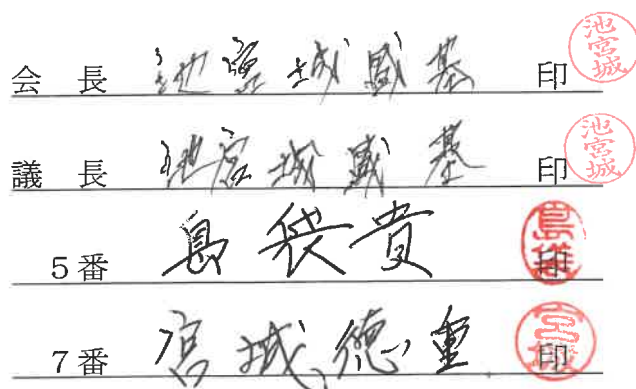 会長 池宮城盛基 印 池宮城
議長 池宮城盛基 印 池宮城
5番 島袋貴 印 島袋
7番 宮城德重 印 宮城